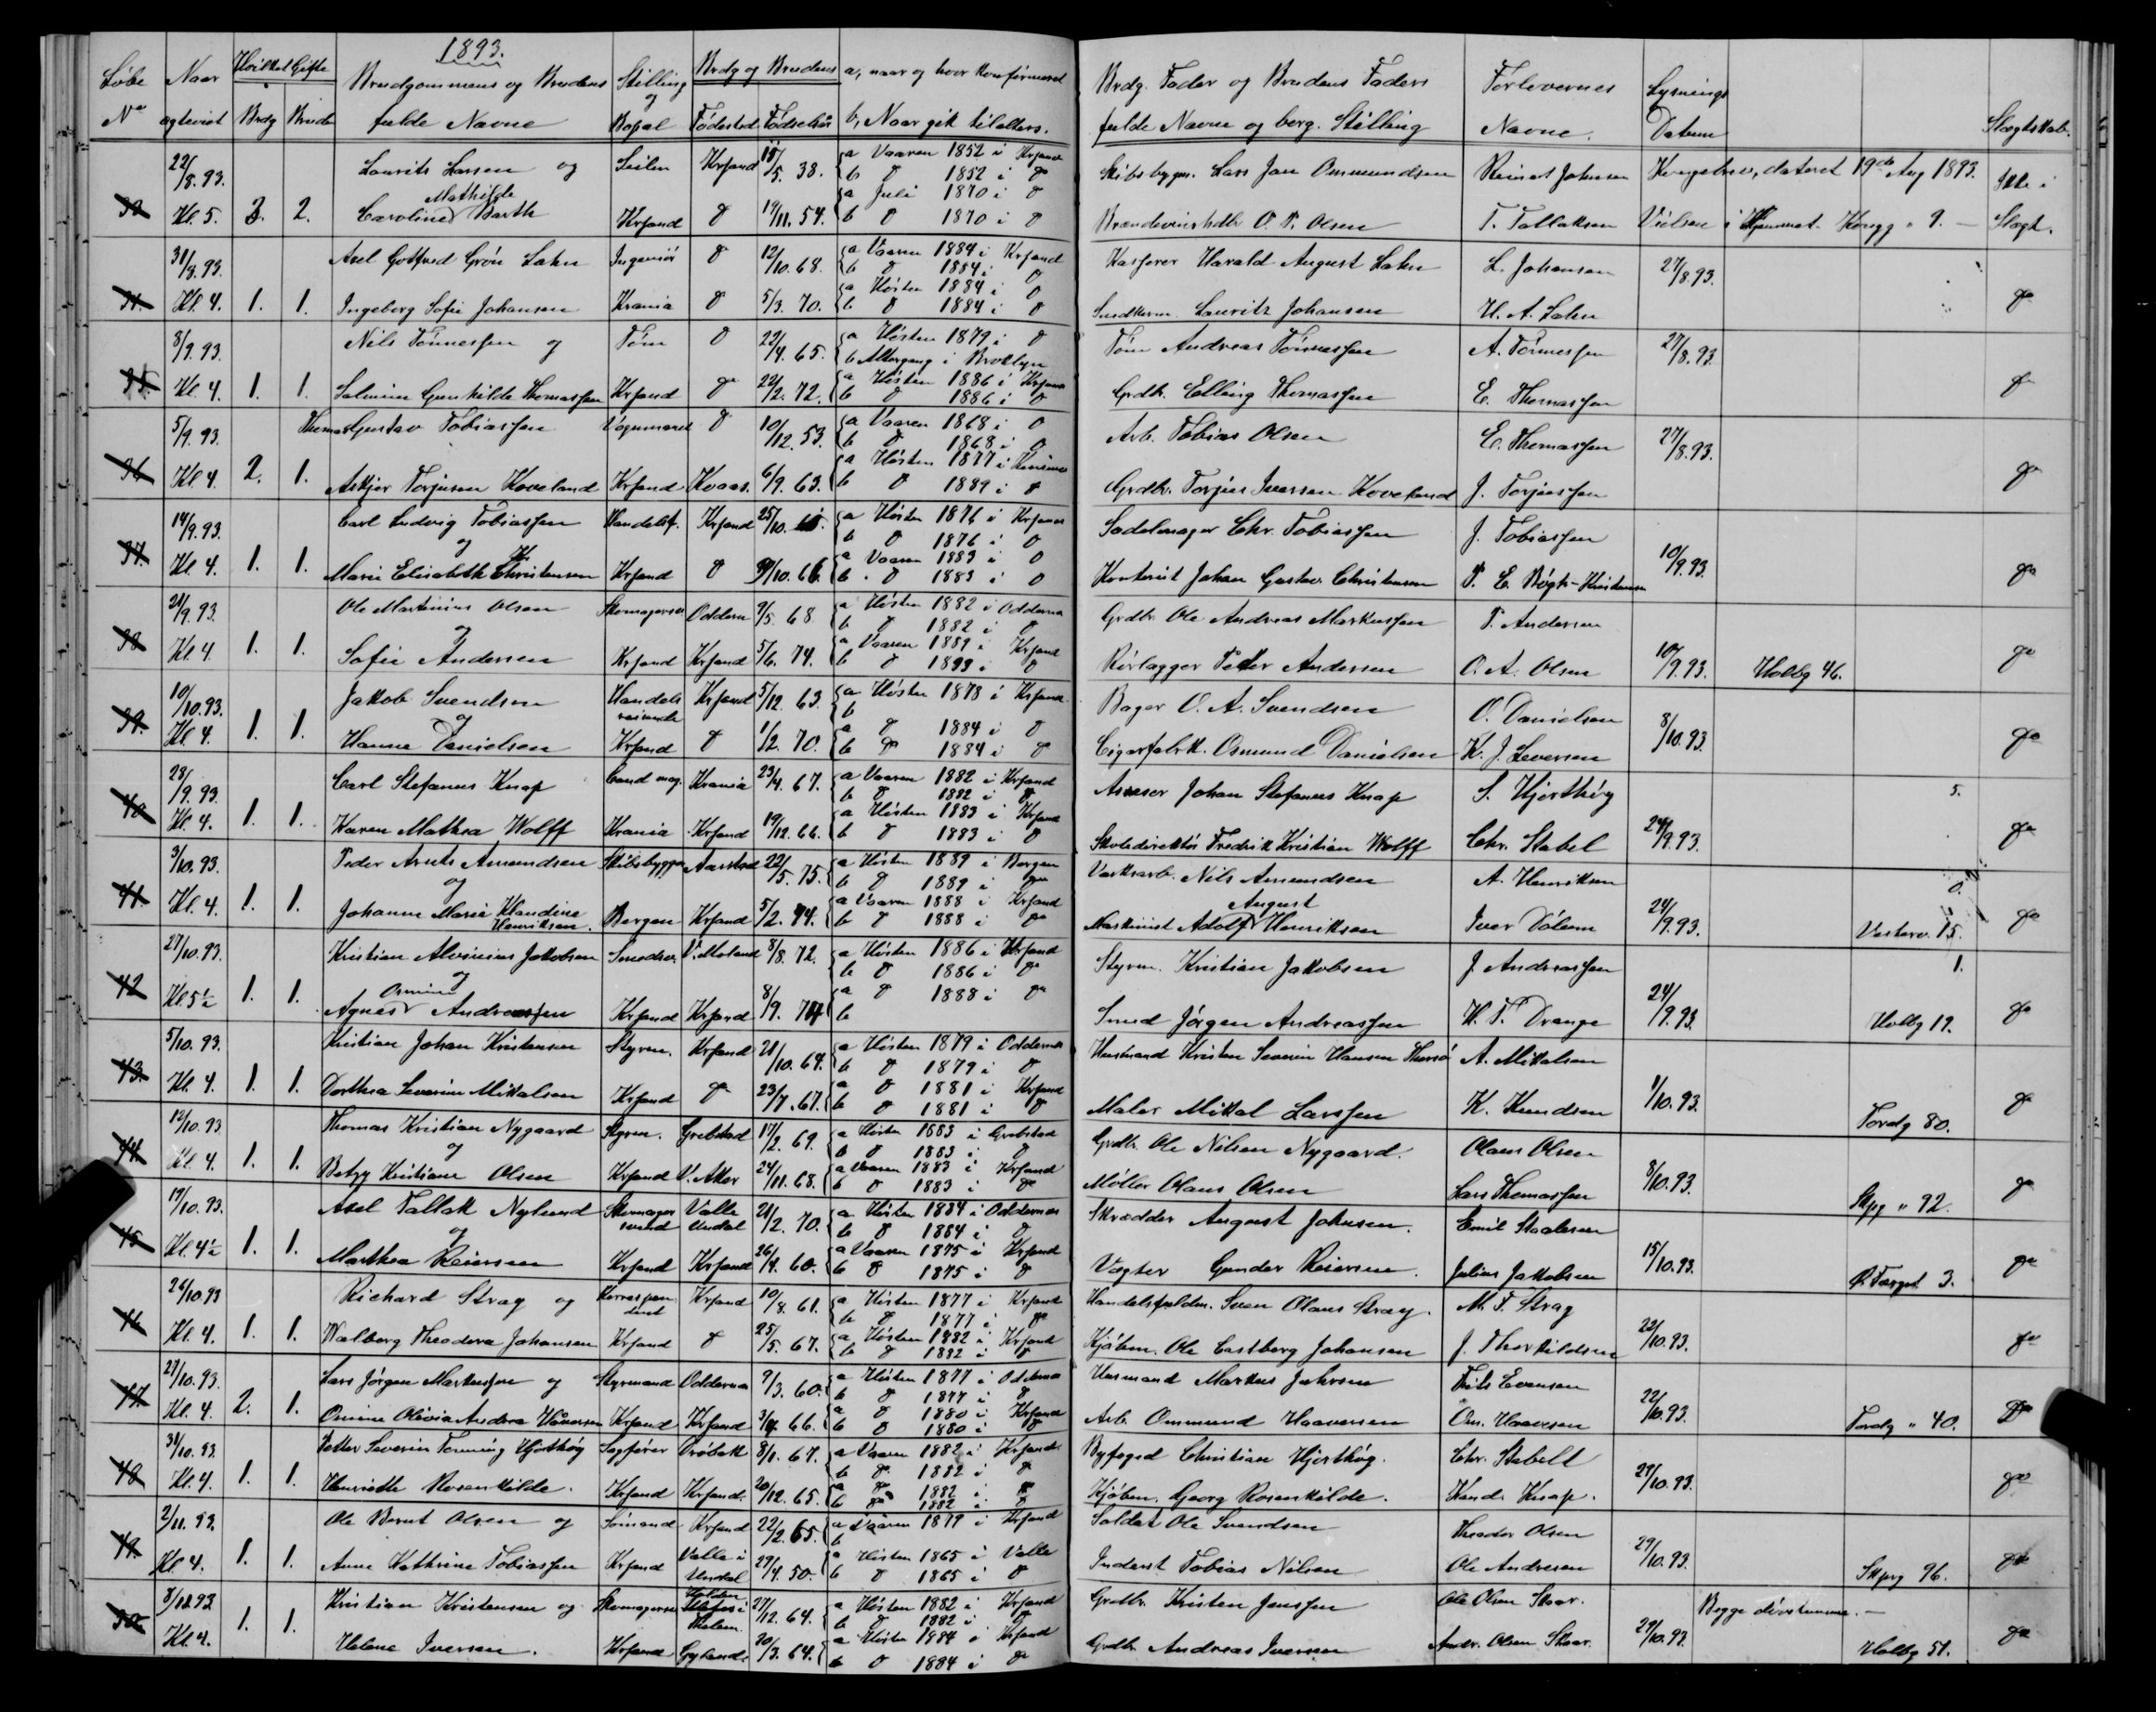 1893.
Løbe Naar Hvilket Gifte Brudgommens og Brudens Stilling Brdg og Brudens a, naar og hvor Konfirmeret
No ægteviet Brdg Brude fulde Navne og Bopæl Fødested Fødselsår b, Naar gik tilalters.
Brdg. Fader og Brudens Faders Forlovernes Lysnings
fulde Navne og borg. Stilling Navne. Datum Slægtskab.
22/8.93. Laurits Larsen og Krsand 15/5. 38. a Vaaren 1852 i Krsand
b d 1852 i do
Mathilde a Juli 1870 i d
Kl. 5. 3. 2. Caroline Barth Krsand d 19/11. 54. b d 1870 i d
Skibsbygm. Lars Jan Ommundsen Reinert Johnsen Kongebrev, dateret 19de Aug 1893. Ikke i
Brændevinshdlr O. T. Olsen T. Tallaksen Vielsen i Hjemmet. Kongg " 9. — Slægt.
31/8.93. Axel Gotfred Grön Lahn Ingeniør d 12/10.68. a Vaaren 1884 i Krsand
b d 1884 i d
a Høsten 1884 i d
Kl. 4. 1. 1. Ingeborg Sofie Johansen Krania d 5/3. 70. b d 1884 i d
Kasserer Harald August Lahn L. Johansen 27/8.93.
Snedkerm. Lauritz Johansen H. A. Lahn do
3/9.93. Nils Tönnessen og Tøm d 22/4.65. a Høsten 1879 i d
b Altergang i Broklyn
35. Kl. 4 1. 1. Salmine Gunhilde Thomassen Krsand do 22/2. 72. a Høsten 1886 i Krsand
b d 1886 i d
Tøm Andreas Tönnessen A. Tönnessen 27/8.93.
Grdb. Elling Thomassen E. Thomassen do
5/9.93. Thomas Gustav Tobiassen Vognmand d 10/12.53. a Vaaren 1868 i d
b d 1868 i d
a Høsten 1877 i
36 Kl. 4. 2. 1. Askjer Torjusen Koveland Krsand Kvaas. 6/9. 63. b d 1889 i d
Arb. Tobias Olsen E. Thomassen 27/8.93.
Grdbr. Torjus Iversen Koveland J. Torjussen do
14/9.93. Carl Ludvig Tobiassen Handelsf. Krsand a Høsten 1876 i Krsand
og b d 1876 i d
K. a Vaaren 1883 i d
37. Kl. 4. 1. 1. Marie Elisabeth Christensen Krsand d 9/10.66. b d 1883 i d
Sadelmager Chr. Tobiassen J. Tobiassen 10/9.93.
Kontorist Johan Gustav Christensen P. E. Bögh-Kristensen do
21/9.93. Ole Martinius Olsen Skomagersv Oddern 9/5. 68. a Høsten 1882 i Oddernes
og b d 1882 i d
a Vaaren 1889 i Krsand
38 Kl. 4. 1. 1. Sofie Andersen Krsand Krsand 5/6. 74. b d 1889 i d
Grdbr. Ole Andreas Markussen P. Andersen
Rørlægger Peder Andersen O. A. Olsen 10/9.93. Holbg 46. do
10/10.93. Jakob Svendsen Handelsreisende Krsand 5/12. 63. a Høsten 1878 i Krsand
og b
a d 1884 i d
39. Kl. 4. 1. 1. Hanna Danielsen Krsand d 1/2. 70. b do 1884 i do
Bager O. A. Svendsen O. Danielsen 8/10.93.
Cigarfabrk. Osmund Danielsen K. J. Severson do
28/9.93. Carl Stefanus Knap Cand mag. Krania 23/4. 67. a Vaaren 1882 i Krsand
b d 1882 i do
a Høsten 1883 i Krsand
40 Kl. 4. 1. 1. Karen Mathea Wolff Krania Krsand 19/12. 66. b d 1883 i d
Assesor Johan Stefanus Knap S. Hjorthøy 5.
Skoledirektör Fredrik Kristian Wolff Chr. Stabel 24/9.93. do
3/10.93. Peder Arnts Amundsen Skibsbygger Aarstad 22/5. 75. a Høsten 1889 i Bergen
og b d 1889 i do
a Vaaren 1888 i Krsand
41. Kl. 4. 1. 1. Johanne Marie Klandine Henriksen. Bergen Krsand 5/2. 74. b d 1888 i do
Værksarb. Nils Amundsen A. Henriksen 0.
August
Maskinist Adolf Henriksen Iver Dölum 24/9.93. Vesterv. 15. do
27/10.93. Kristian Alvinius Jakobsen Smedsv. V. Moland 8/8. 72. a Høsten 1886 i Krsand
og b d 1886 i do
a d 1888 i do
42 Kl. 5½ 1. 1. Agnes Andreassen Krsand Krsand 8/9. 74 b
Styrm. Kristian Jakobsen J. Andreassen 1.
Smed Jørgen Andreassen H. T. Drange 24/9.93. Holbg 19. do
5/10.93. Kristian Johan Kristensen Styrm. Krsand 21/10.64. a Høsten 1879 i Oddernes
b d 1879 i d
a d 1881 i Krsand
43. Kl. 4. 1. 1. Dorthea Severine Mikalsen Krsand do 23/7.67. b d 1881 i do
Husmand Kristen Severin Hansen A. Mikalsen
Maler Mikal Larssen K. Knudsen 1/10.93. Tordg 80. do
12/10.93. Thomas Kristian Nygaard Styrm. Grebstad 17/2. 69. a Høsten 1883 i Grebstad
og b d 1883 i d
a Vaaren 1883 i Krsand
44. Kl. 4. 1. 1. Betzy Kristiane Olsen Krsand V. Aker 24/11.68. b d 1883 i do
Grdbr. Ole Nilsen Nygaard. Olaus Olsen
Møller Olaus Olsen Lars Thomassen 8/10.93. Skpg " 92. do
19/10.93. Axel Tallak Nylund Skomagersvend Valle Undal 21/2. 70. a Høsten 1884 i Oddernes
og b d 1884 i d
a Vaaren 1875 i Krsand
45 Kl. 4½ 1. 1. Marthea Reiersen Krsand Krsand 26/4. 60. b d 1875 i d
Skrædder August Johnsen. Emil Staalesen
Vægter Gunder Reiersen. Julius Jakobsen 15/10.93. Ø. 3. do
26/10.93 Richard Stray og Korrespondent Krsand 10/8. 61. a Høsten 1877 i Krsand
b d 1877 i do
a Høsten 1882 i Krsand
46 Kl. 4. 1. 1. Walborg Theodora Johansen Krsand d 25/5. 67. b d 1882 i d
Handelsfuldm. Sven Olaus Stray. M. T. Stray
Kjøbm. Ole Eastberg Johansen J. Thorkildsen 22/10.93. do
27/10.93. Lars Jørgen Markussen og Styrmand Oddernes 9/3. 60. a Høsten 1877 i Oddernes
b d 1877 i d
a d 1880 i Krsand
47. Kl. 4. 2. 1. Omine Olivia Andrea Håversen Krsand Krsand 66. b d 1880 i d
Husmand Markus Johnsen Nils Evensen
Arb. Ommund Haaversen Om. Haaversen 22/10.93. Tordg " 40. do
31/10.93. Petter Severin Temming Hjorthøy Sagfører Drøbak 8/1. 67. a Vaaren 1882 i Krsand
b do 1882 i d
a do 1882 i do
48 Kl. 4. 1. 1. Henriette Rosenkilde. Krsand Krsand. 20/12. 65. b do 1882 i d
Byfoged Christian Hjorthøy. Chr. Stabell
Kjøbm. Georg Rosenkilde. Kand. Knap. 29/10.93. do
2/11.93. Ole Bernt Olsen og Sømand Krsand 22/2 65. a Vaaren 1879 i Krsand
b
a Høsten 1865 i Valle
49. Kl. 4. 1. 1. Anne Kathrine Tobiassen Krsand Valle i Undal 29/4. 50. b d 1865 i d
Soldat Ole Svendsen Theodor Olsen
Inderst Tobias Nilsen Ole Andresen 29/10.93. Skpg 96. do
Kristian Kristensen og Skomagersv. 27/12. 64. a Høsten 1882 i Krsand
b d 1882 i d
a Høsten 1884 i Krsand
50. Kl. 4. 1. 1. Helene Iversen. Krsand Gyland. 20/3. 64. b d 1884 i do
Grdbr. Kristen Jenssen Ole Olsen Skaar. Begge døvstumme. —
Grdb. Andreas Iversen Andr. Olsen Skaar. 29/10.93. Holbg 51. do